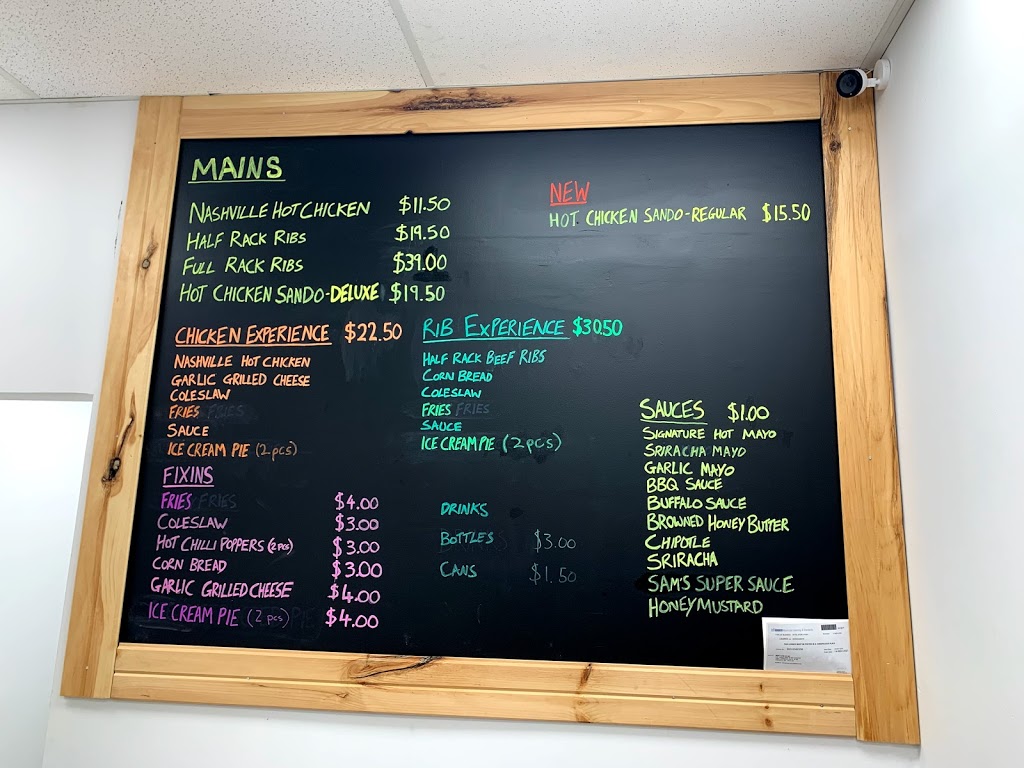 MAINS
NASHVILLE HOT CHICKEN $11.50
HALF RACK RIBS $19.50
FULL RACK RIBS $39.00
HOT CHICKEN SANDO-DELUXE $19.50
NEW
HOT CHICKEN SANDO-REGULAR $15.50
CHICKEN EXPERIENCE $22.50
NASHVILLE HOT CHICKEN
GARLIC GRILLED CHEESE
COLESLAW
FRIES FRIES
SAUCE
ICE CREAM PIE (2pcs)
RIB EXPERIENCE $30.50
HALF RACK BEEF RIBS
CORN BREAD
COLESLAW
FRIES FRIES
SAUCE
ICE CREAM PIE (2pcs)
FIXINS
FRIES FRIES $4.00
COLESLAW $3.00
HOT CHILLI POPPERS (2pcs) $3.00
CORN BREAD $3.00
GARLIC GRILLED CHEESE $4.00
ICE CREAM PIE (2pcs) $4.00
DRINKS
BOTTLES $3.00
CANS $1.50
SAUCES $1.00
SIGNATURE HOT MAYO
SRIRACHA MAYO
GARLIC MAYO
BBQ SAUCE
BUFFALO SAUCE
BROWNED HONEY BUTTER
CHIPOTLE
SRIRACHA
SAM'S SUPER SAUCE
HONEY MUSTARD